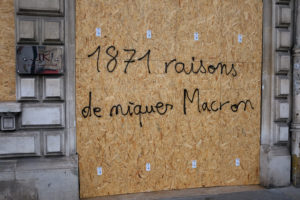 1871 raisons
de niquer Macron